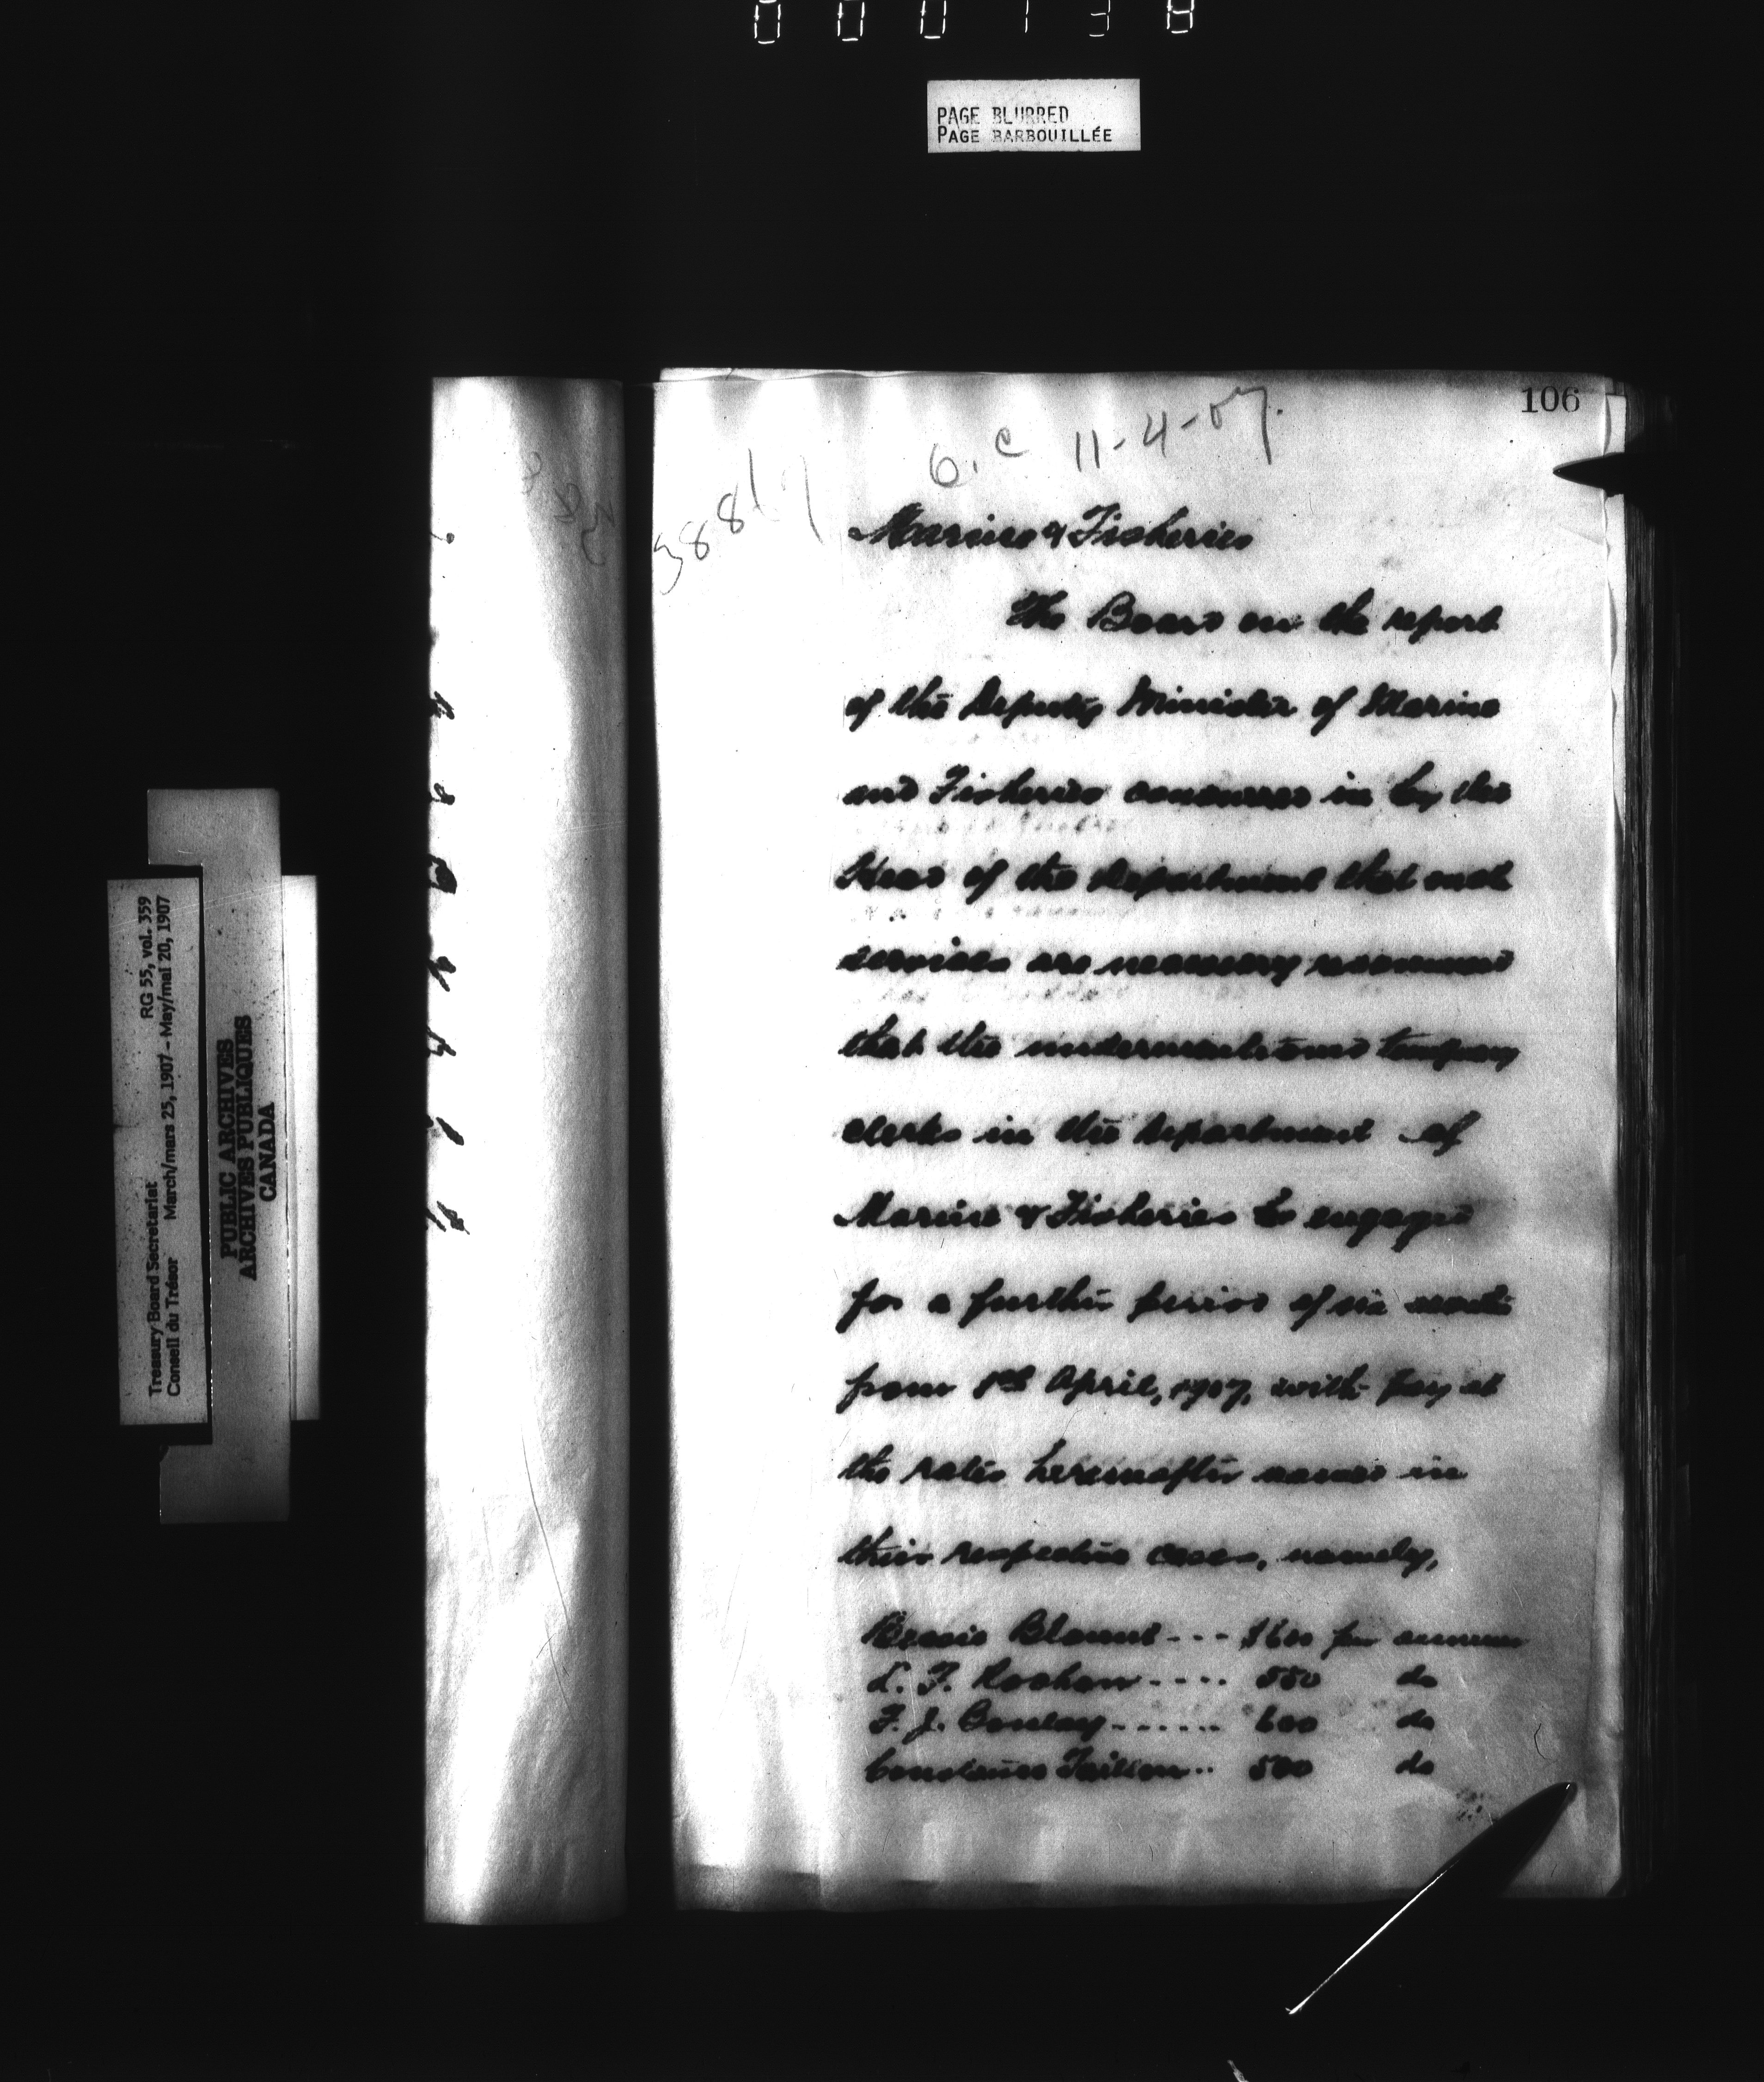 000138
PAGE BLURRED
PAGE BARBOUILLÉE
106
O.C 11-4-07.
388
Marine & Fisheries
The Board on the report
of the Deputy Minister of Marine
and Fisheries concurred in by the
Head of the Department that such
services are necessary recommend
that the undermentioned temporary
clerks in the Department of
Marine & Fisheries be engaged
for a further period of six months
from 1st April, 1907, with pay at
the rates hereinafter named in
their respective cases, namely,
Bessie Blount --- $600 per annum
L. F. ---- 550 do
F. J. ------ 600 do
Constance .. 500 do
Treasury Board Secretariat RG 55, vol. 359
Conseil du Trésor March/mars 25, 1907 - May/mai 20, 1907
PUBLIC ARCHIVES
ARCHIVES PUBLIQUES
CANADA